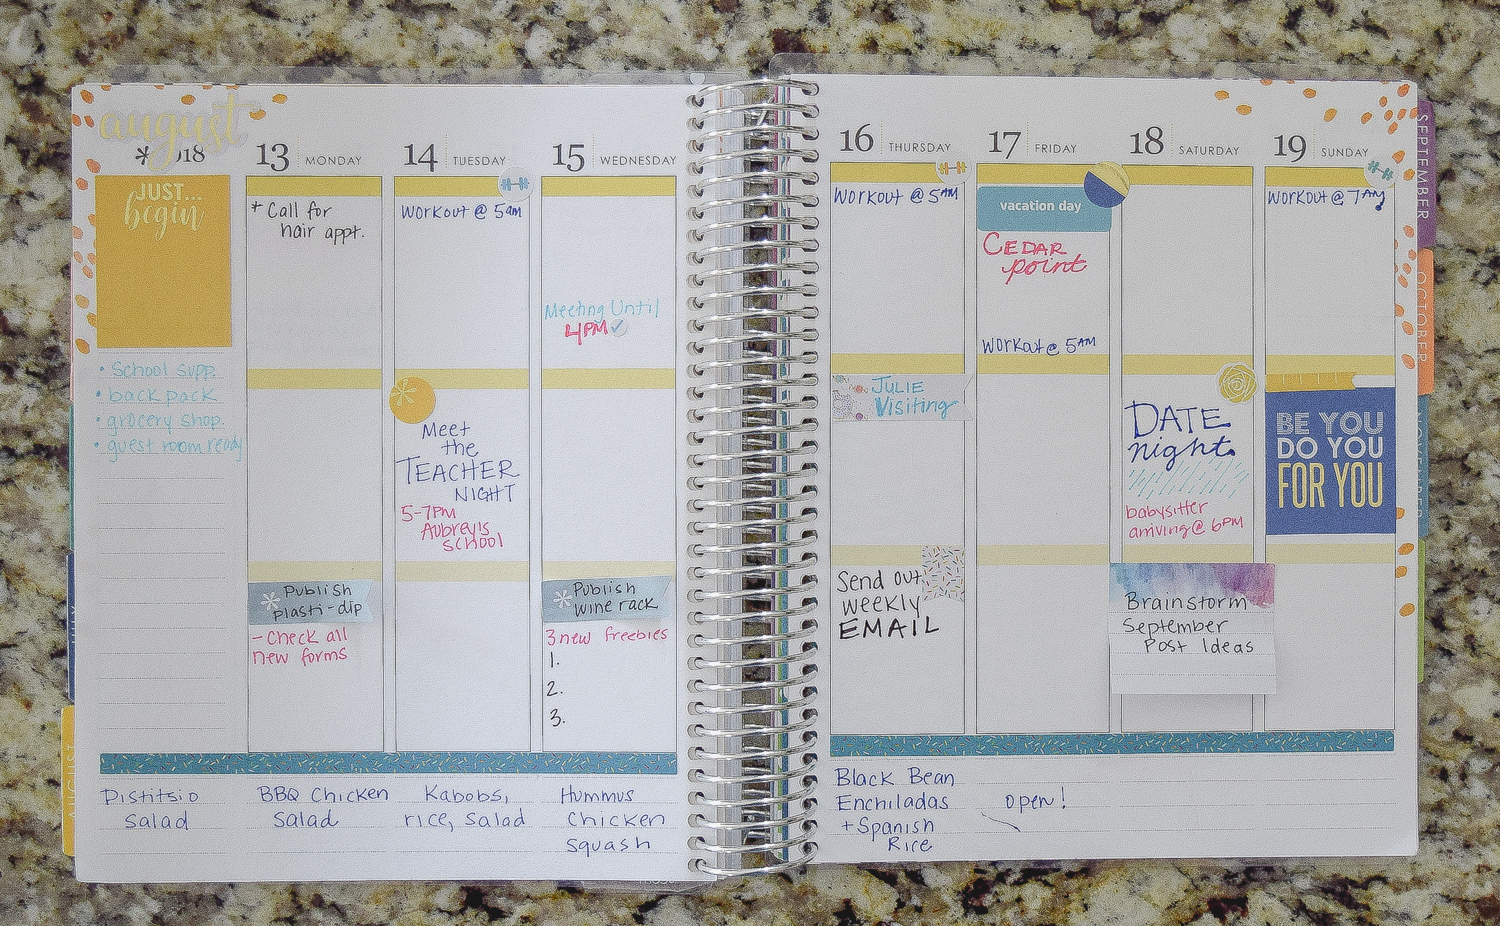 august
*
JUST...
begin
• School supp.
• back pack
• grocery shop.
• guest room ready
13 MONDAY
* Call for
hair appt.
Publish
plasti-dip
- Check all
new forms
14 TUESDAY
Workout @ 5am
Meet
the
TEACHER
NIGHT
5-7PM
Aubrey's
school
15 WEDNESDAY
Meeting Until
4PM
Publish
wine rack
3 new freebies
1.
2.
3.
Distitsio
Salad
BBQ Chicken
Salad
Kabobs,
rice, salad
Hummus
Chicken
Squash
16 THURSDAY
Workout @ 5AM
JULIE
Visiting
Send out
weekly
EMAIL
17 FRIDAY
vacation day
CEDAR
point
Workout @ 5AM
18 SATURDAY
DATE
night.
babysitter
arriving @ 6PM
Brainstorm
September
Post Ideas
19 SUNDAY
Workout @ 7AM
BE YOU
DO YOU
FOR YOU
Black Bean
Enchiladas
+ Spanish
Rice
open!
SEPTEMBER
OCTOBER
NOVEMBER
JULY
AUGUST